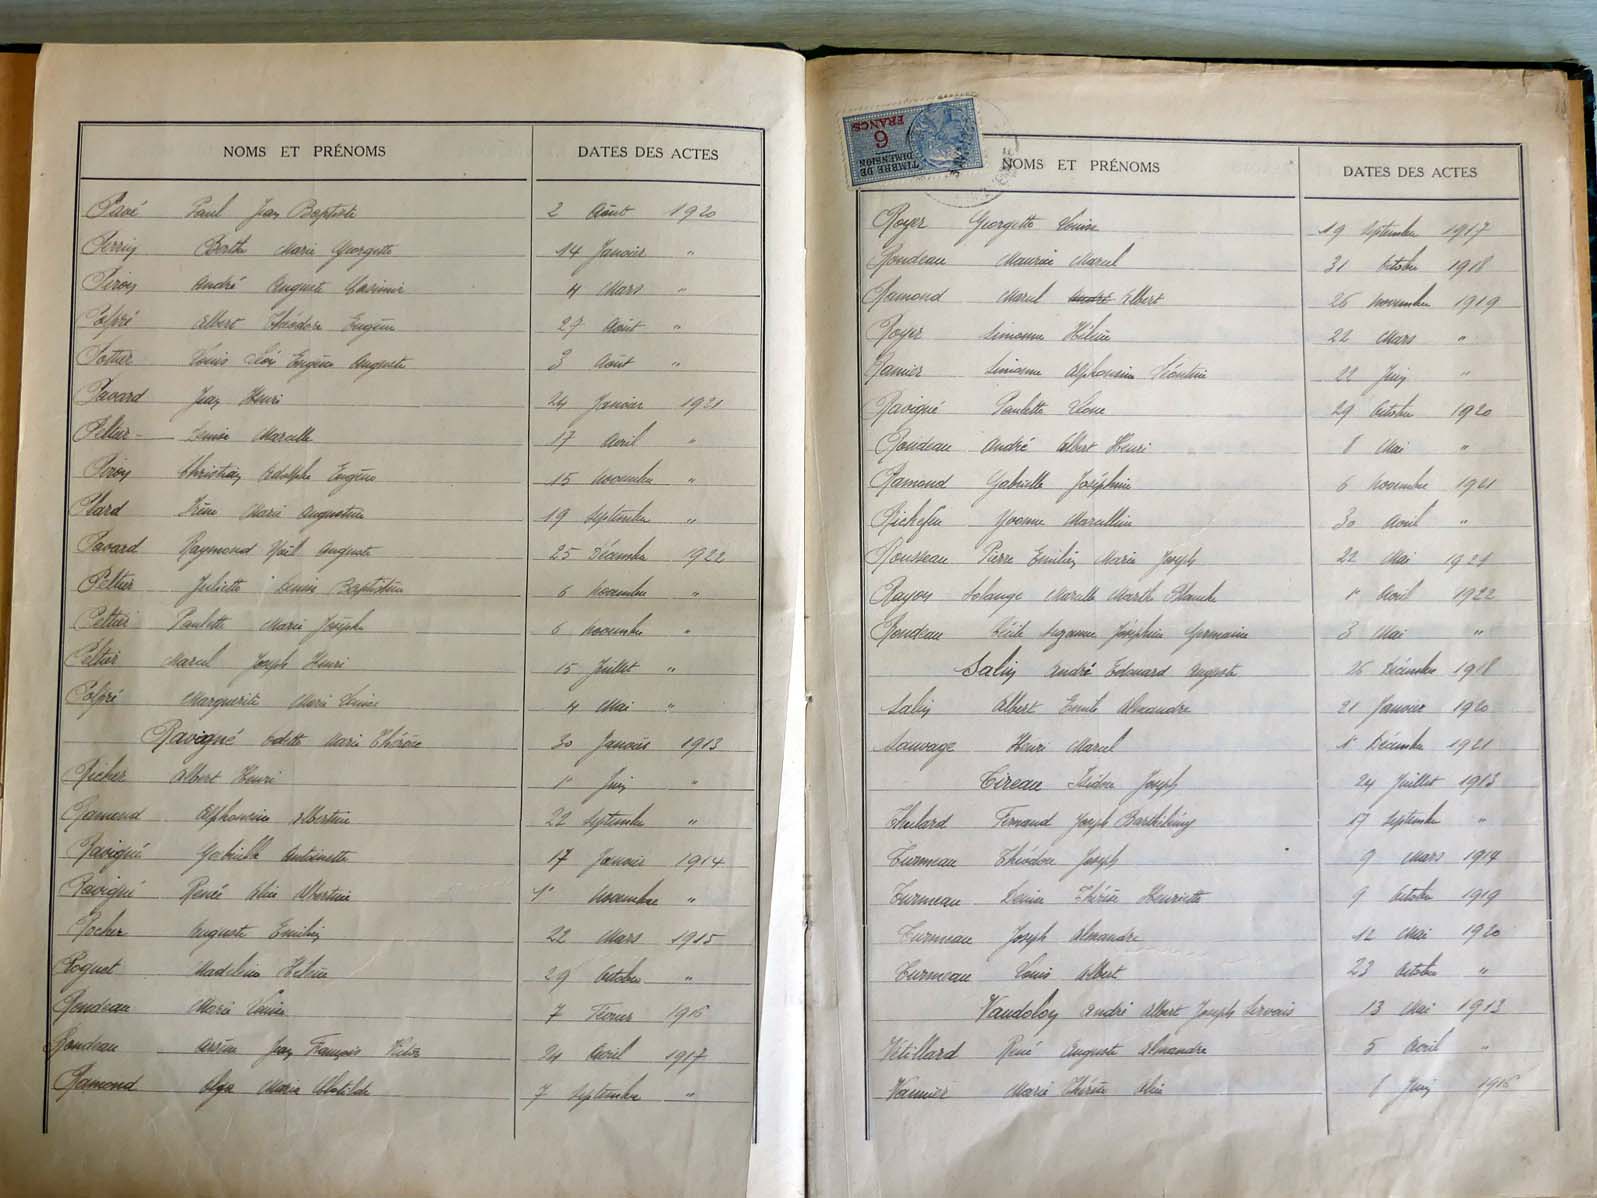 NOMS ET PRÉNOMS DATES DES ACTES
Pavé Paul Jean Baptiste 2 Août 1920
Perrin Berthe Marie Georgette 14 Janvier "
Piron André Auguste Casimir 4 Mars "
Albert Théodore Eugène 27 Août "
Pottier Louis Léon Eugène Auguste 3 Août "
Pavard Jean Henri 24 Janvier 1921
Peltier Denise Marcelle 17 Avril "
Piron Christian Adolphe Eugène 15 Novembre "
Plard Irène Marie Augustine 19 Septembre "
Pavard Raymond Noël Auguste 25 Décembre 1922
Peltier Juliette Denise Baptistine 6 Novembre "
Peltier Paulette Marie Josèphe 6 Novembre "
Peltier Marcel Joseph Henri 15 Juillet "
Marguerite Marie Louise 4 Mai "
Ravigné Odette Marie Thérèse 30 Janvier 1913
Richer Albert Henri 1er Juin "
Ramond Alphonsine Albertine 22 Septembre "
Ravigné Gabrielle Antoinette 17 Janvier 1914
Ravigné Renée Aline Albertine 1er Novembre "
Rocher Auguste Emilien 22 Mars 1915
Roguet Madeleine Hélène 29 Octobre "
Rondeau Marie Louise 7 Février 1916
Rondeau Arsène Jean François Victor 24 Avril 1917
Ramond Olga Marie Clotilde 7 Septembre "
TIMBRE DE DIMENSION
6 FRANCS
NOMS ET PRÉNOMS DATES DES ACTES
Royer Georgette Louise 19 Septembre 1917
Rondeau Maurice Marcel 31 Octobre 1918
Ramond Marcel André Albert 26 Novembre 1919
Royer Simonne Hélène 22 Mars "
Ramier Simonne Alphonsine Léontine 22 Juin "
Ravigné Paulette 29 Octobre 1920
Rondeau André Albert Henri 8 Mai "
Ramond Gabrielle Joséphine 6 Novembre 1921
Richefeu Yvonne Marcelline 30 Avril "
Rousseau Pierre Emilien Marie Joseph 22 Mai 1921
Rayon Solange Marcelle Marthe Blanche 1er Avril 1922
Rondeau Cécile Suzanne Joséphine Germaine 3 Mai "
Salin André Edouard Auguste 26 Décembre 1918
Salin Albert Emile Alexandre 21 Janvier 1920
Sauvage Henri Marcel 1er Décembre 1921
Tireau Isidore Joseph 24 Juillet 1913
Thulard Fernand Joseph Barthélémy 17 Septembre "
Turmeau Théodore Joseph 9 Mars 1914
Turmeau Denise Thérèse Henriette 9 Octobre 1919
Turmeau Joseph Alexandre 12 Mai 1920
Turmeau Louis Albert 23 Octobre "
Vaudolon André Albert Joseph Servais 13 Mai 1913
Vétillard René Auguste Alexandre 5 Avril "
Vannier Marie Thérèse Aline 8 Juin 1916